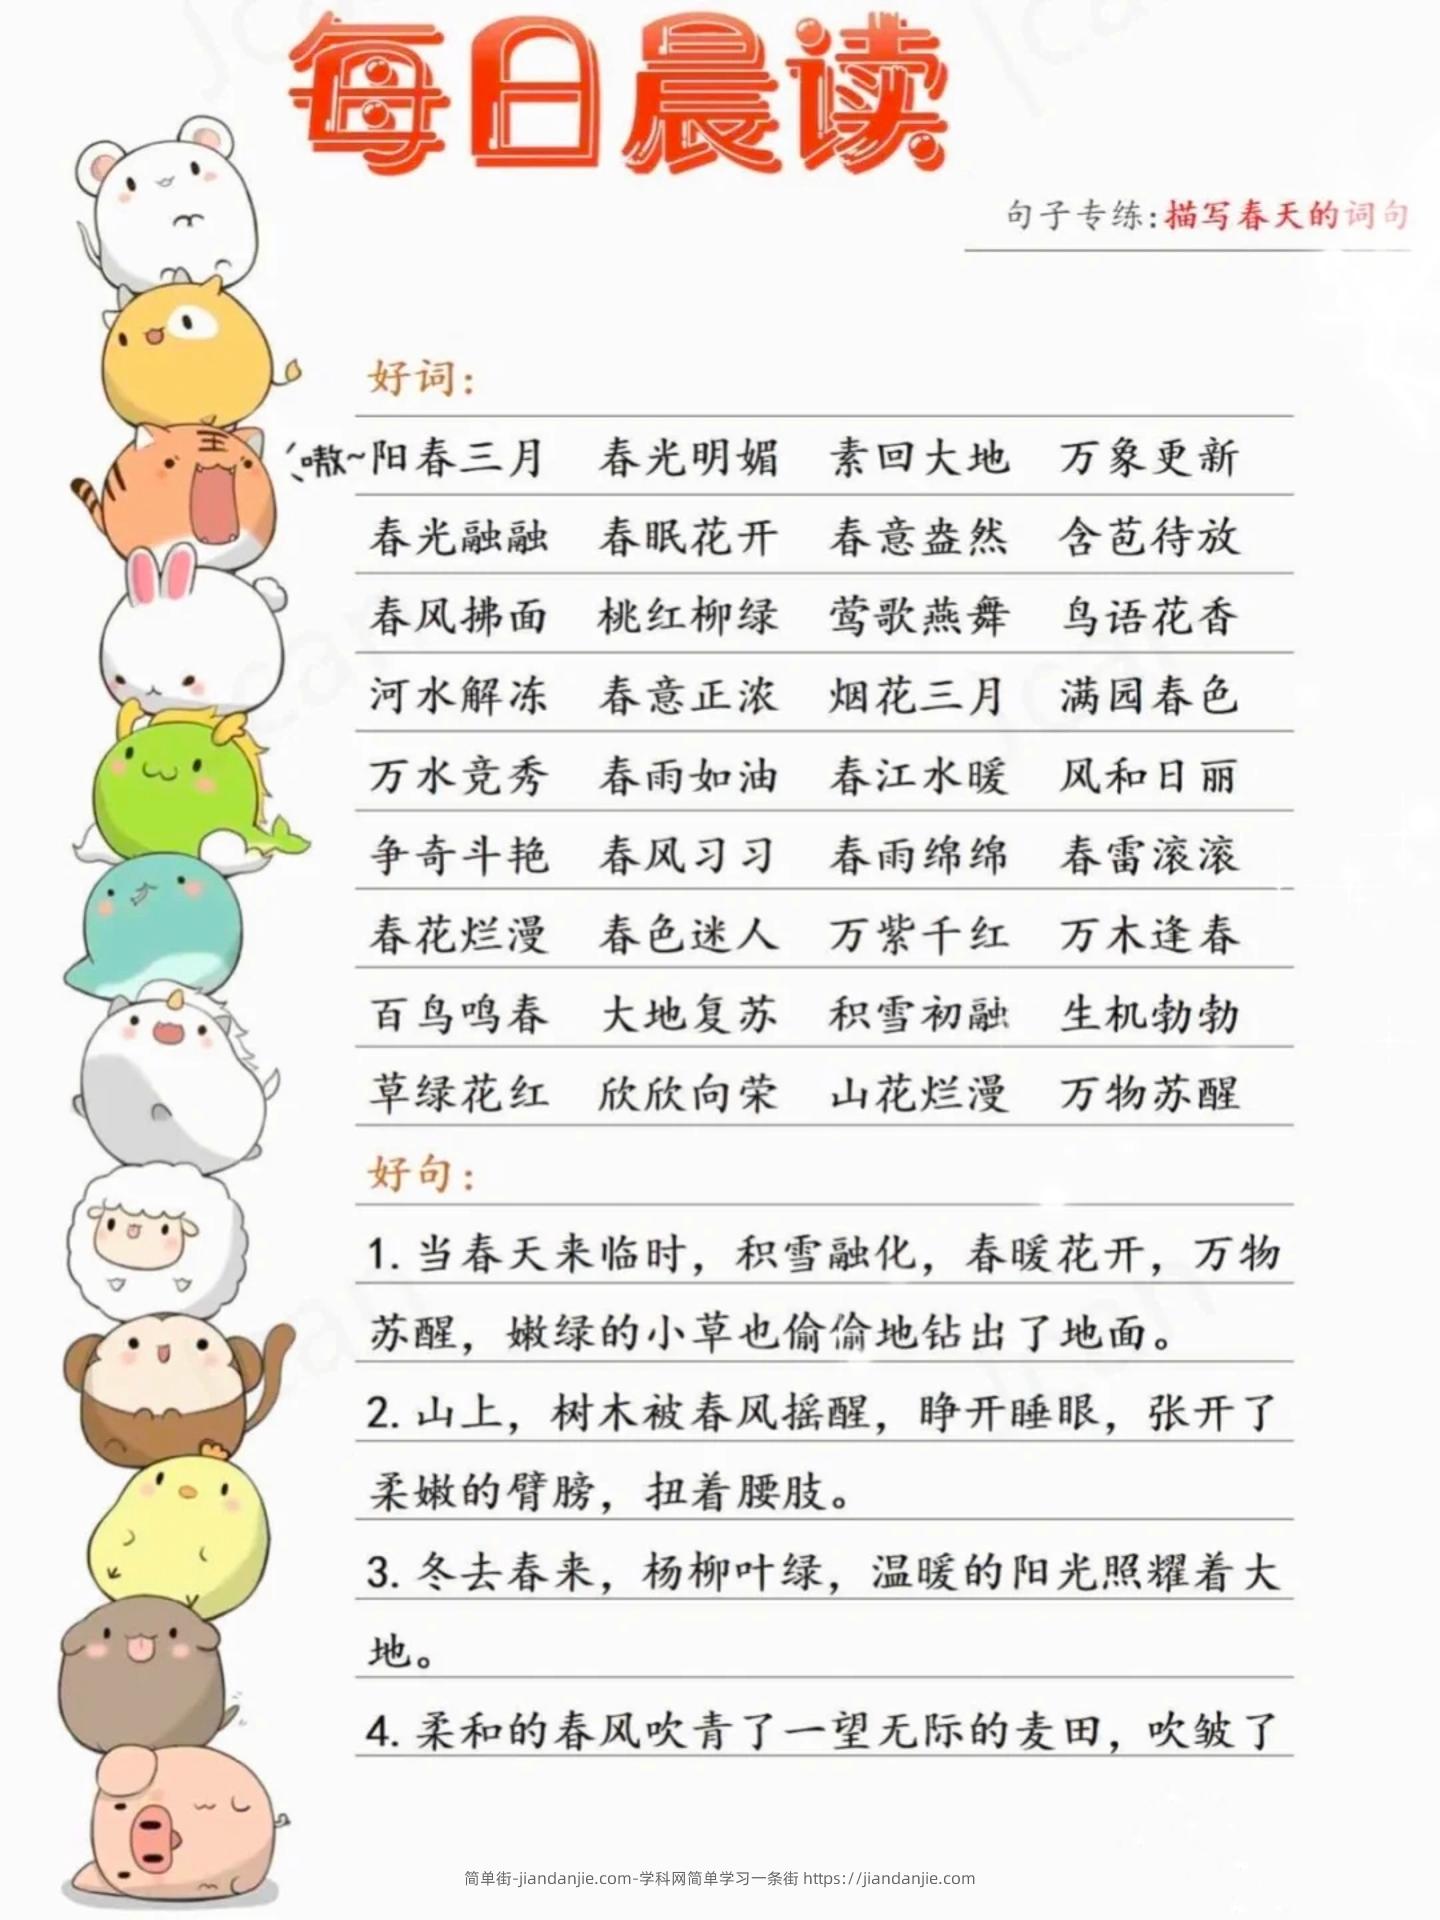 每日晨读
句子专练:描写春天的词句
好词:
嗷~
阳春三月 春光明媚 素回大地 万象更新
春光融融 春眠花开 春意盎然 含苞待放
春风拂面 桃红柳绿 莺歌燕舞 鸟语花香
河水解冻 春意正浓 烟花三月 满园春色
万水竞秀 春雨如油 春江水暖 风和日丽
争奇斗艳 春风习习 春雨绵绵 春雷滚滚
春花烂漫 春色迷人 万紫千红 万木逢春
百鸟鸣春 大地复苏 积雪初融 生机勃勃
草绿花红 欣欣向荣 山花烂漫 万物苏醒
好句:
1. 当春天来临时，积雪融化，春暖花开，万物
苏醒，嫩绿的小草也偷偷地钻出了地面。
2. 山上，树木被春风摇醒，睁开睡眼，张开了
柔嫩的臂膀，扭着腰肢。
3. 冬去春来，杨柳叶绿，温暖的阳光照耀着大
地。
4. 柔和的春风吹青了一望无际的麦田，吹皱了
简单街-jiandanjie.com-学科网简单学习一条街 https://jiandanjie.com